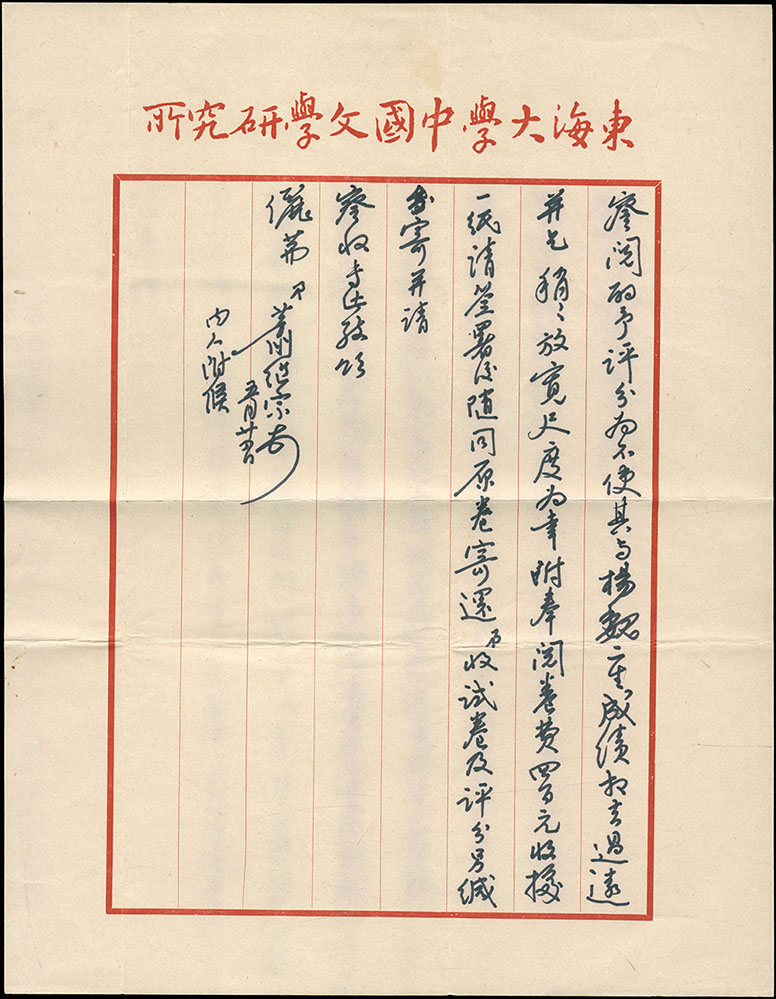 東海大學中國文學研究所
察閱酌予評分為不使其与楊魏二君成績相去過遠
并乞稍々放寬尺度為幸附奉閱卷費四百元收據
一紙請簽署後随同原卷寄還弟收試卷及評分另緘
寄并請
察收專此敬頌
儷茀 弟蕭繼宗
五月廿
内人附候